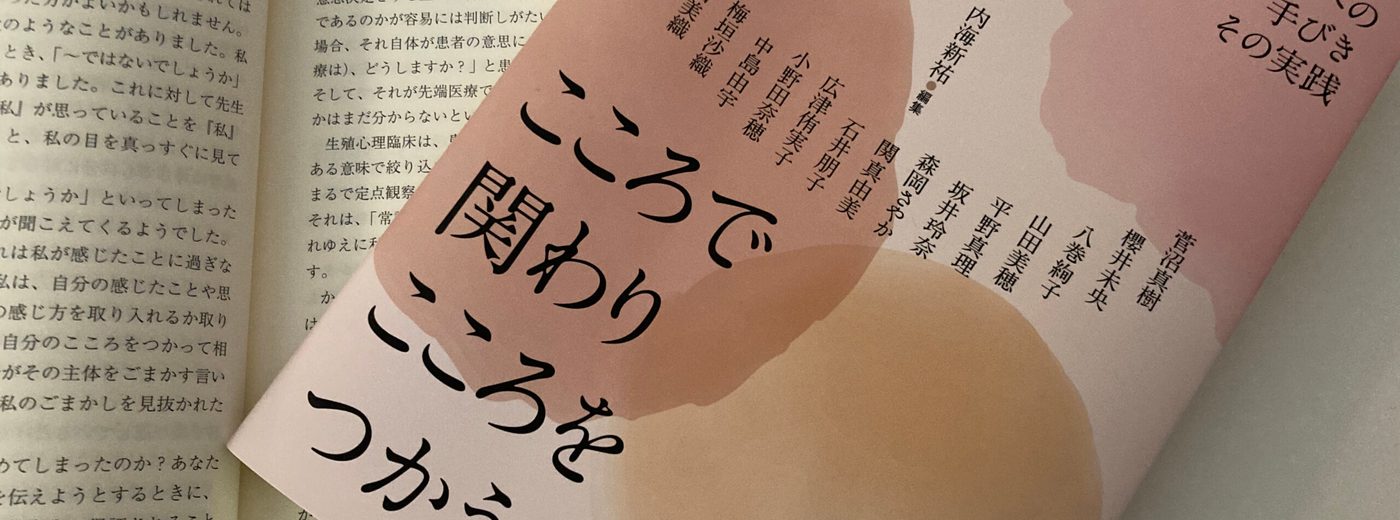 った方がよいかもしれません。
のようなことがありました。私
とき、「～ではないでしょうか」
ありました。これに対して先生
私』が思っていることを『私』
と、私の目を真っすぐに見て
しょうか」といってしまった
が聞こえてくるようでした。
れは私が感じたことに過ぎな
私は、自分の感じたことや思
の感じ方を取り入れるか取り
自分のこころをつかって相
がその主体をごまかす言い
私のごまかしを見抜かれた
めてしまったのか？あなた
を伝えようとするときに、
であるのかが容易には判断しがたい
場合、それ自体が患者の意思に
療は)、どうしますか？」と
そして、それが先端医療で
かはまだ分からないとい
生殖心理臨床は、
ある意味で絞り込
まるで定点観察
それは、「常
れゆえに
す。
か
は
の
手びき
その実践
内海新祐●編集
菅沼真樹
櫻井未央
八巻絢子
山田美穂
平野真理
坂井玲奈
森岡さやか
関真由美
石井朋子
広津侑実子
小野田奈穂
中島由宇
梅垣沙織
美織
こころで
関わり
こころを
つかう